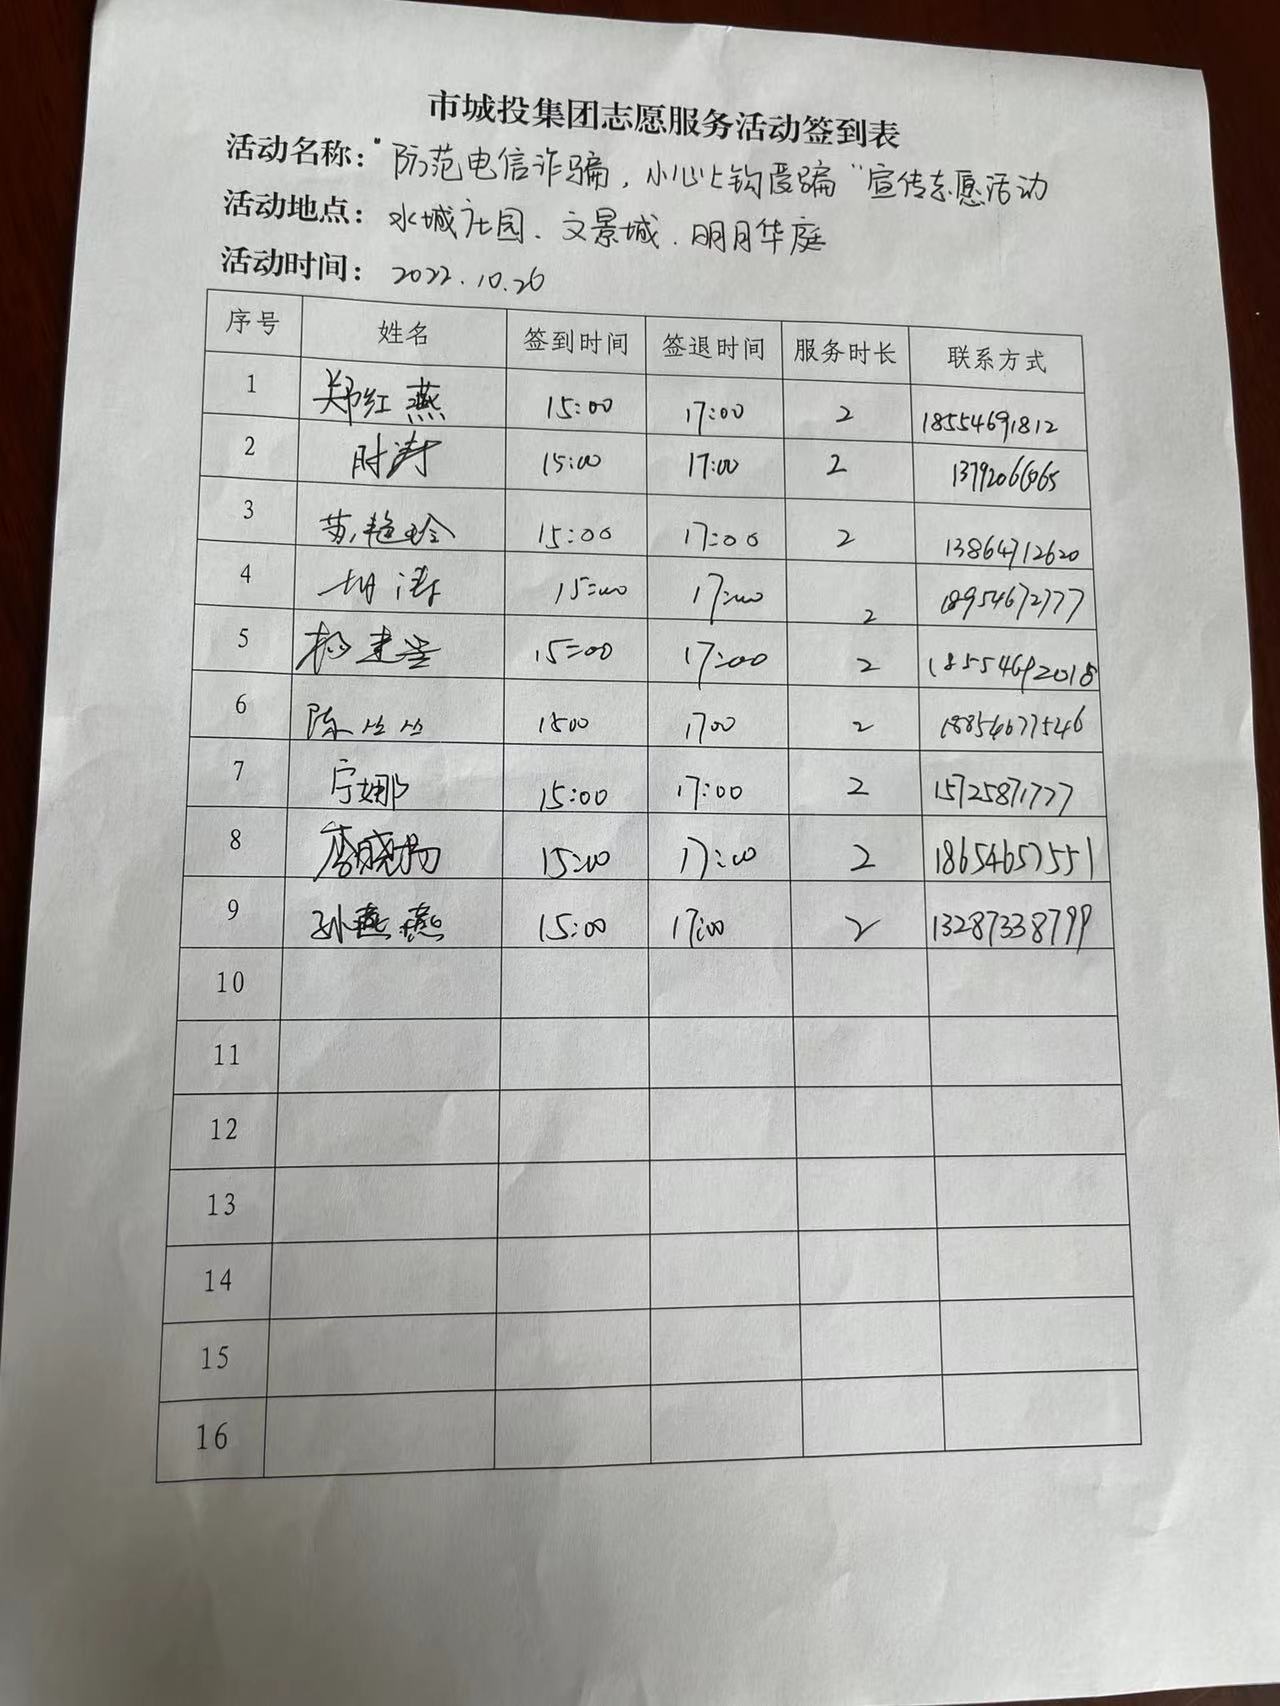 市城投集团志愿服务活动签到表
活动名称："防范电信诈骗，小心上钩受骗"宣传志愿活动
活动地点：水城庄园、文景城、明月华庭
活动时间：2022.10.26
序号 姓名 签到时间 签退时间 服务时长 联系方式
1 郑红燕 15:00 17:00 2 18554691812
2 时涛 15:00 17:00 2
3 苏艳玲 15:00 17:00 2 13864712620
4 胡涛 15:00 17:00 2 18954672777
5 杨建 15:00 17:00 2 18554692018
6 陈丝丝 1500 1700 2 18854677546
7 宁娜 15:00 17:00 2 15725871777
8 李晓杨 15:00 17:00 2 18654657551
9 孙燕燕 15:00 17:00 2 13287338799
10
11
12
13
14
15
16